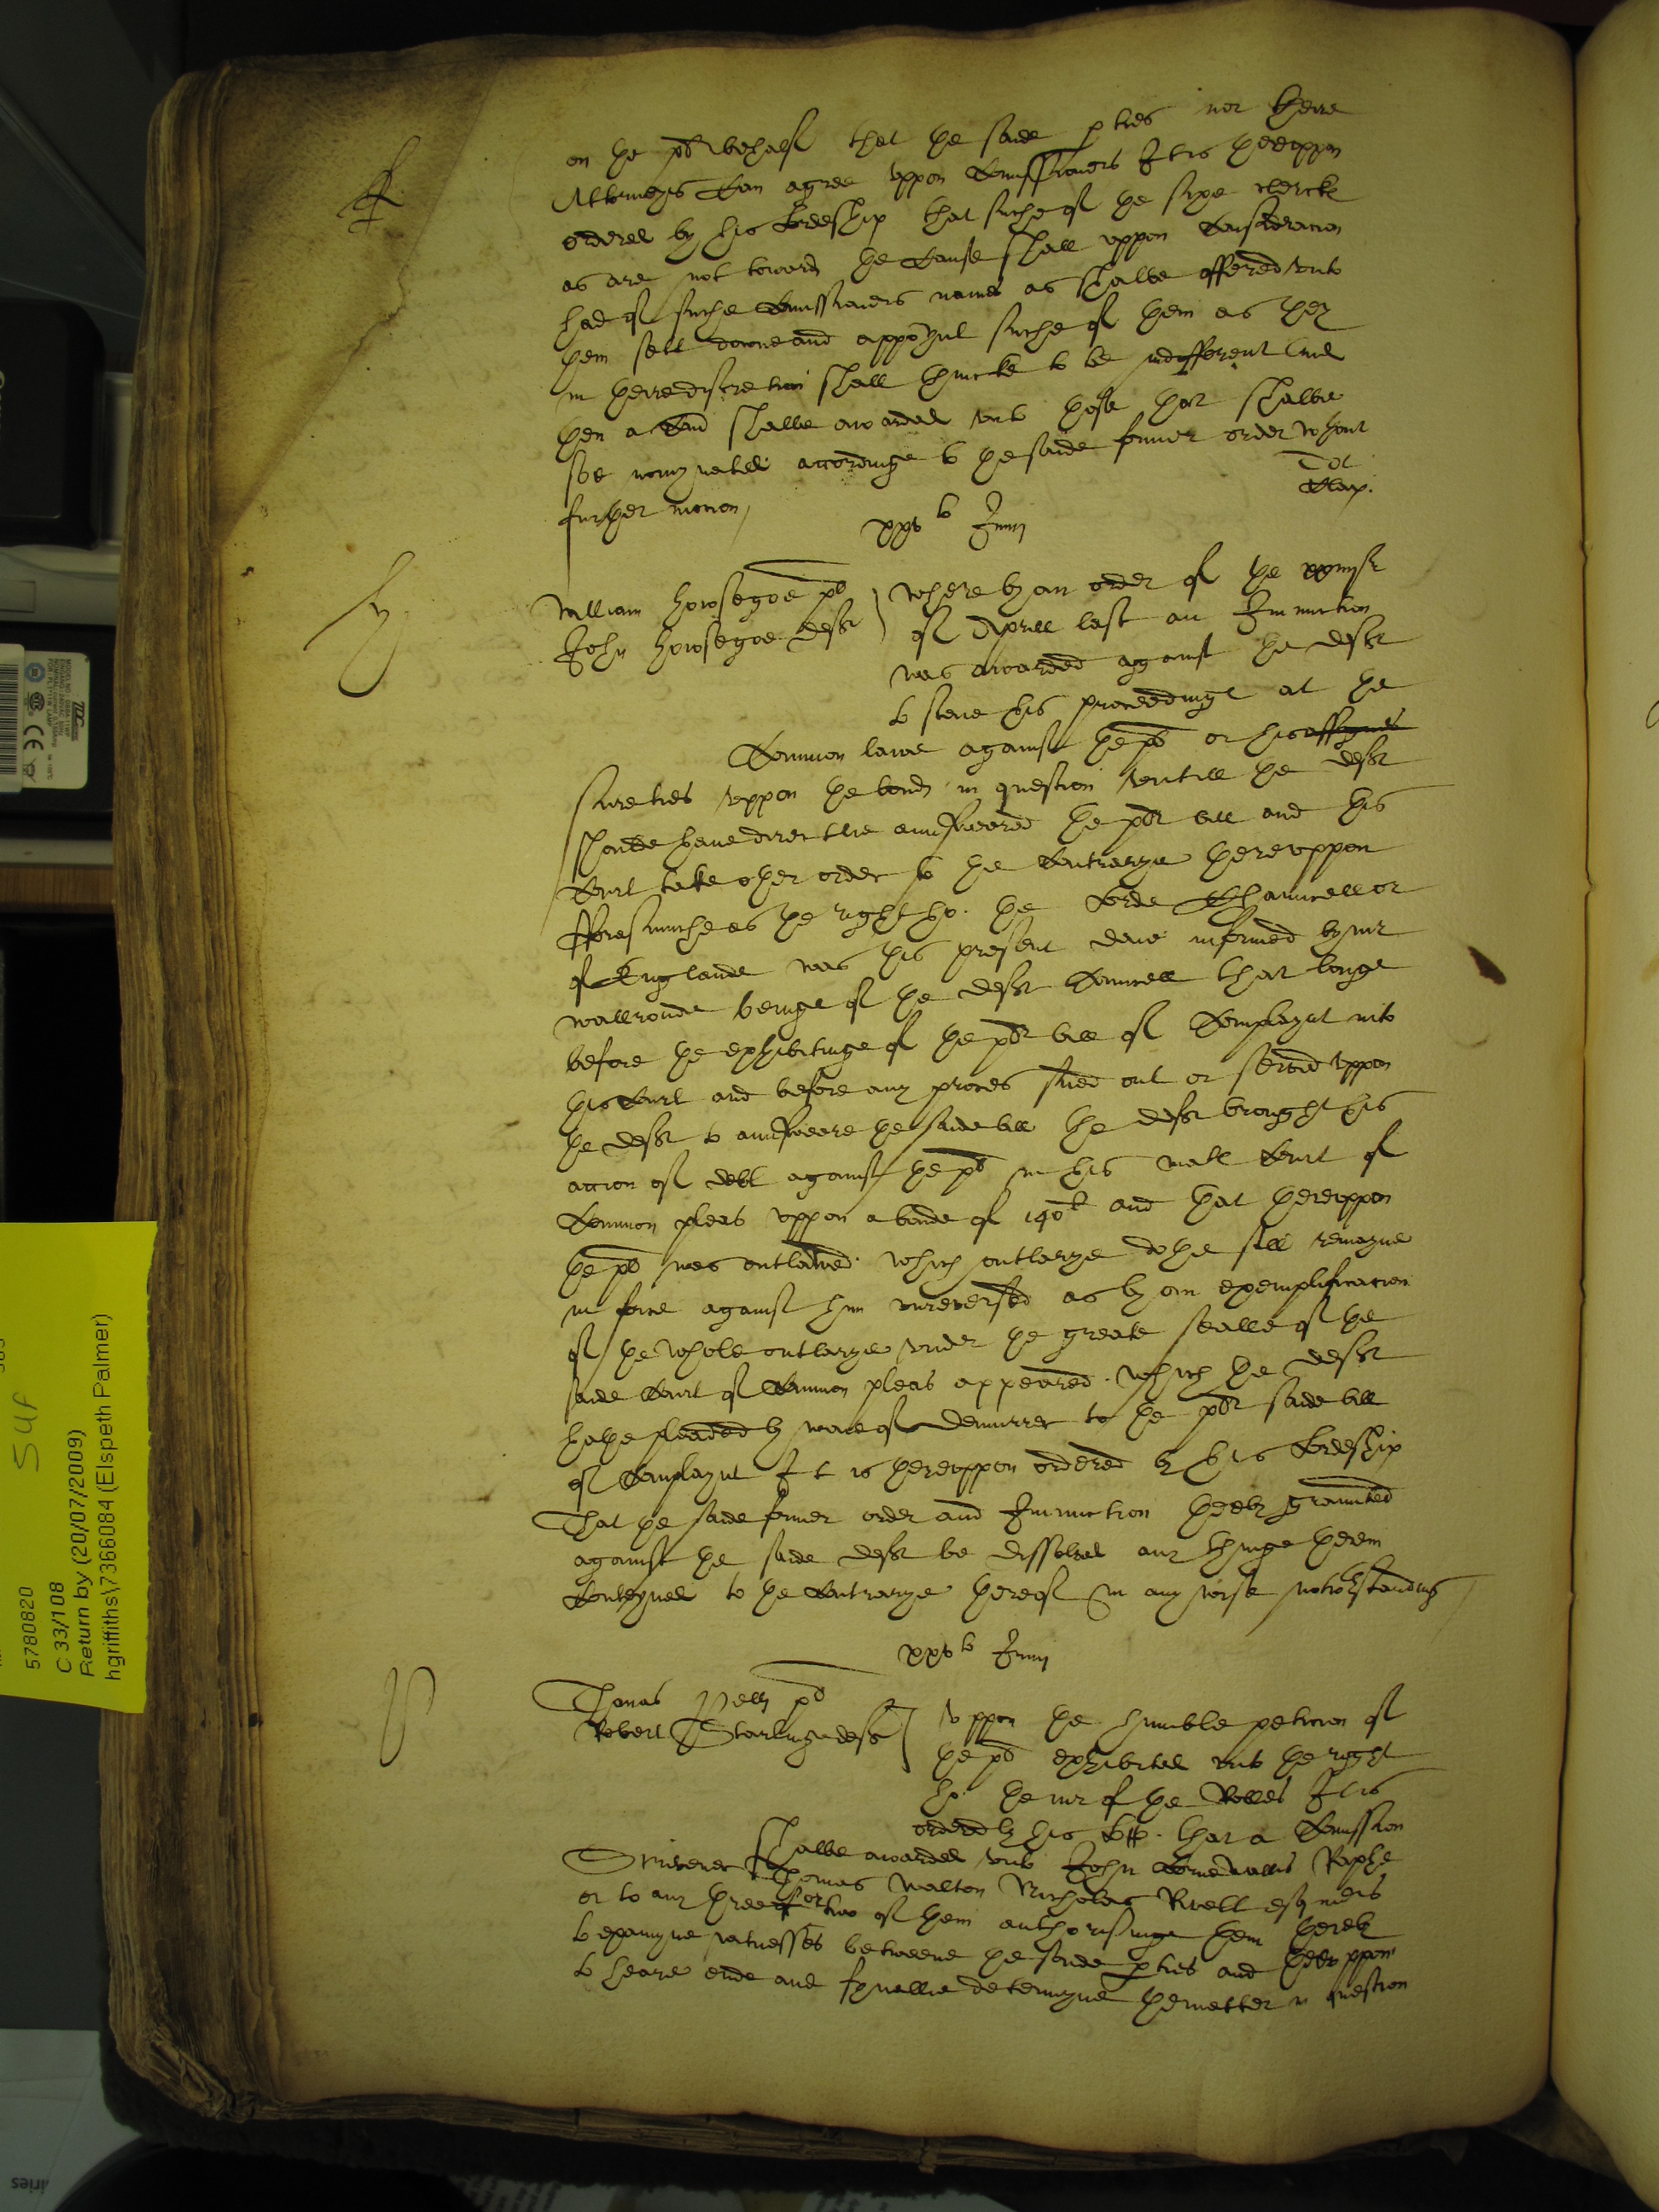 on the pl behalf that the saide pties nor theire
Attorneys Can agree uppon Comissioners It is thereuppon
ordered by his Lordeship that suche of the sixe clercke
as are not towards the Cause shall uppon Consideracion
had of suche Comissioners names as shalbe offered unto
them sett downe and appoynt suche of them as they
in theire discretion shall thincke to be indifferent And
then a Comd shalbe awarded unto those that shalbe
soe nomynated accordinge to the saide former order wthout
further motion
Tot
Clap.
xxvto Junij
William Howsegoe pl
John Howsegoe deft
where by an order of the xxviijth
of Aprill last an Iniunction
was awarded against the deft
to staie his proceedinge at the
Common lawe against the pl or his assignes
sureties uppon the bond in question untill the deft
shoulde have directlie aunsweered the plt bill and this
Court take other order to the Contrarye thereuppon
fforasmuche as the right ho. the Lorde Chauncellor
of Englande was this present daie informed by mr
wallronde beinge of the deft Councell that longe
before the exhibitinge of the plt bill of Complaynt into
this Court and before any proces sued out or served uppon
the deft to aunsweere the saide bill the deft brought his
accion of debt against the pl in his mats Court of
Common pleas uppon a bonde of 140li and that thereuppon
the pl was outlawed which outlarye dothe still remayne
in force against him unreversed as by an exemplificacion
of the whole outlarye under the greate sealle of the
saide Court of Common pleas appeared which the deft
hathe pleaded by waie of demurrer to the plt saide bill
of Complaynt It is thereuppon ordered by his Lordeship
That the saide former order and Iniunction therby graunted
against the saide deft be dissolved any thinge therein
Conteyned to the Contrarye thereof in any wise notwthstanding
xxvto Junij
Thomas Pell pl
Robert Starlinge deft
Uppon the humble peticion of
the pl exhibited unto the right
ho. the mr of the Rolles It is
ordered by his Lp. that a Comission
shalbe awarded unto John Cornewallis Raphe
Scrivener Thomas Walton Nicholas Rivell esquiers
or to any three or two of them authorisinge them therby
to examyne witnesses betweene the saide pties and thereuppon
to heare ende and fynallie determyne the matter in question
5780820
C 33/108
Return by (20/07/2009)
hgriffiths\7366084 (Elspeth Palmer)